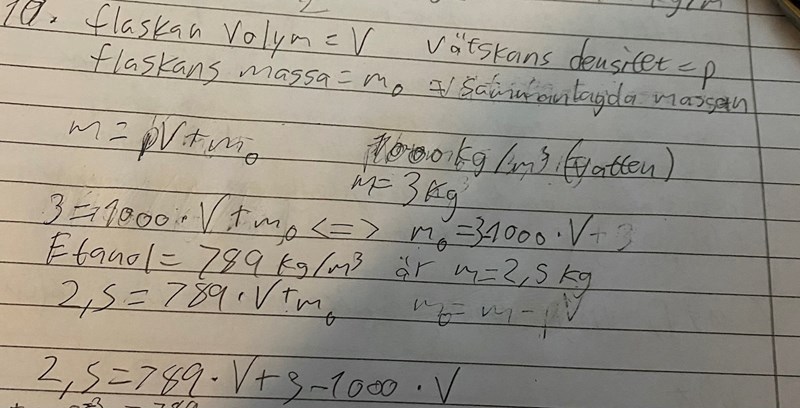 10. flaskan volym = V vätskans densitet = ρ
flaskans massa = m₀ sammantagda massan
m = ρV + m₀ 1000 kg/m³ (vatten)
m = 3 kg
3 = 1000 · V + m₀ <=> m₀ = 3-1000 · V
Etanol = 789 kg/m³ är m = 2,5 kg
2,5 = 789 · V + m₀ m₀ = m - ρV
2,5 = 789 · V + 3 - 1000 · V